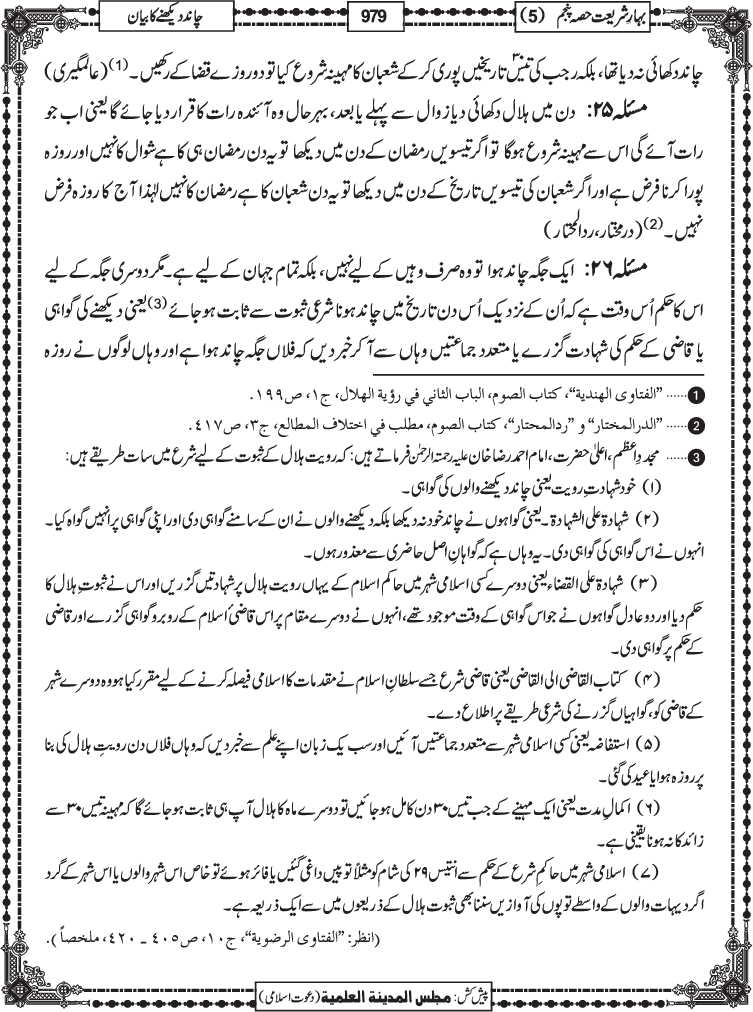 بہارِ شریعت حصہ پنجم (5)
979
چاند دیکھنے کا بیان
چاند دکھائی نہ دیا تھا، بلکہ رجب کی تیس ۳۰ تاریخیں پوری کر کے شعبان کا مہینہ شروع کیا تو دو روزے قضا کے رکھیں۔(1) (عالمگیری)
مسئلہ ۲۵: دن میں ہلال دکھائی دیا زوال سے پہلے یا بعد، بہرحال وہ آئندہ رات کا قرار دیا جائے گا یعنی اب جو
رات آئے گی اس سے مہینہ شروع ہوگا تو اگر تیسویں رمضان کے دن میں دیکھا تو یہ دن رمضان ہی کا ہے شوال کا نہیں اور روزہ
پورا کرنا فرض ہے اور اگر شعبان کی تیسویں تاریخ کے دن میں دیکھا تو یہ دن شعبان کا ہے رمضان کا نہیں لہٰذا آج کا روزہ فرض
نہیں۔(2) (درمختار، ردالمحتار)
مسئلہ ۲۶: ایک جگہ چاند ہوا تو وہ صرف وہیں کے لیے نہیں، بلکہ تمام جہان کے لیے ہے۔ مگر دوسری جگہ کے لیے
اس کا حکم اُس وقت ہے کہ اُن کے نزدیک اُس دن تاریخ میں چاند ہونا شرعی ثبوت سے ثابت ہو جائے(3) یعنی دیکھنے کی گواہی
یا قاضی کے حکم کی شہادت گزرے یا متعدد جماعتیں وہاں سے آ کر خبر دیں کہ فلاں جگہ چاند ہوا ہے اور وہاں لوگوں نے روزہ
1 ...... ''الفتاوی الهندية''، کتاب الصوم، الباب الثاني في رؤية الهلال، ج۱، ص۱۹۹.
2 ...... ''الدرالمختار'' و ''ردالمحتار''، کتاب الصوم، مطلب في اختلاف المطالع، ج۳، ص٤١٧.
3 ...... مجدد اعظم، اعلیٰ حضرت، امام احمد رضا خان علیہ رحمۃ الرحمٰن فرماتے ہیں: کہ رویت ہلال کے ثبوت کے لیے شرع میں سات طریقے ہیں:
(۱) خود شہادتِ رویت یعنی چاند دیکھنے والوں کی گواہی۔
(۲) شہادۃ علی الشہادۃ۔ یعنی گواہوں نے چاند خود نہ دیکھا بلکہ دیکھنے والوں نے ان کے سامنے گواہی دی اور اپنی گواہی پر انہیں گواہ کیا۔
انہوں نے اس گواہی کی گواہی دی۔ یہ وہاں ہے کہ گواہانِ اصل حاضری سے معذور ہوں۔
(۳) شہادۃ علی القضاء یعنی دوسرے کسی اسلامی شہر میں حاکم اسلام کے یہاں رویت ہلال پر شہادتیں گزریں اور اس نے ثبوتِ ہلال کا
حکم دیا اور دو عادل گواہوں نے جو اس گواہی کے وقت موجود تھے، انہوں نے دوسرے مقام پر اس قاضیٔ اسلام کے روبرو گواہی گزرے اور قاضی
کے حکم پر گواہی دی۔
(۴) کتاب القاضی الی القاضی یعنی قاضی شرع جسے سلطانِ اسلام نے مقدمات کا اسلامی فیصلہ کرنے کے لیے مقرر کیا ہو وہ دوسرے شہر
کے قاضی کو، گواہیاں گزرنے کی شرعی طریقے پر اطلاع دے۔
(۵) استفاضہ یعنی کسی اسلامی شہر سے متعدد جماعتیں آئیں اور سب یک زبان اپنے علم سے خبر دیں کہ وہاں فلاں دن رویتِ ہلال کی بنا
پر روزہ ہوا یا عید کی گئی۔
(۶) اکمالِ مدت یعنی ایک مہینے کے جب تیس ۳۰ دن کامل ہو جائیں تو دوسرے ماہ کا ہلال آپ ہی ثابت ہو جائے گا کہ مہینہ تیس ۳۰ سے
زائد کا نہ ہونا یقینی ہے۔
(۷) اسلامی شہر میں حاکمِ شرع کے حکم سے انتیس ۲۹ کی شام کو مثلاً توپیں داغی گئیں یا فائر ہوئے تو خاص اس شہر والوں یا اس شہر کے گرد
اگرد دیہات والوں کے واسطے توپوں کی آوازیں سننا بھی ثبوت ہلال کے ذریعوں میں سے ایک ذریعہ ہے۔
(انظر: ''الفتاوی الرضوية''، ج۱۰، ص٤٠٥ ـ ٤٢٠، ملخصاً).
پیش کش: مجلس المدینة العلمیة (دعوتِ اسلامی)